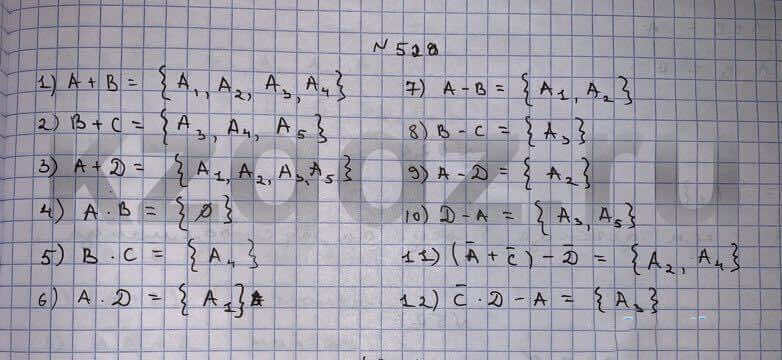 N 528
1) A + B = {A₁, A₂, A₃, A₄}
2) B + C = {A₃, A₄, A₅}
3) A + D = {A₁, A₂, A₃, A₅}
4) A · B = {∅}
5) B · C = {A₄}
6) A · D = {A₁}
7) A - B = {A₁, A₂}
8) B - C = {A₃}
9) A - D = {A₂}
10) D - A = {A₃, A₅}
11) (Ā + C̄) - D̄ = {A₂, A₄}
12) C̄ · D - A = {A₃}
kzgdz.ru